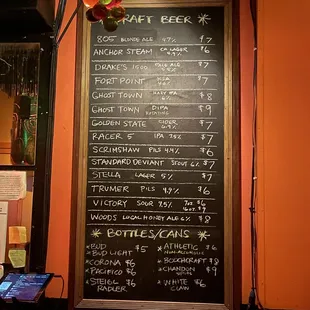 CRAFT BEER
805 BLONDE ALE 4.7% $7
ANCHOR STEAM CA LAGER 4.9% $6
DRAKE'S 1500 PALE ALE $7
FORT POINT KSA $7
GHOST TOWN HAZY IPA 6% $8
GHOST TOWN DIPA ROTATING $9
GOLDEN STATE CIDER 6.9% $7
RACER 5 IPA 7.5% $7
SCRIMSHAW PILS 4.4% $6
STANDARD DEVIANT STOUT 6% $7
STELLA LAGER 5% $7
TRUMER PILS 4.9% $6
VICTORY SOUR 7.5%
WOODS LOCAL HONEY ALE 6% $8
BOTTLES/CANS
BUD
BUD LIGHT $5
CORONA $6
PACIFICO $6
STEIGL RADLER $6
ATHLETIC $6
NON-ALCOHOLIC
BOOCHCRAFT $8
CHANDON $9
WHITE CLAW $6